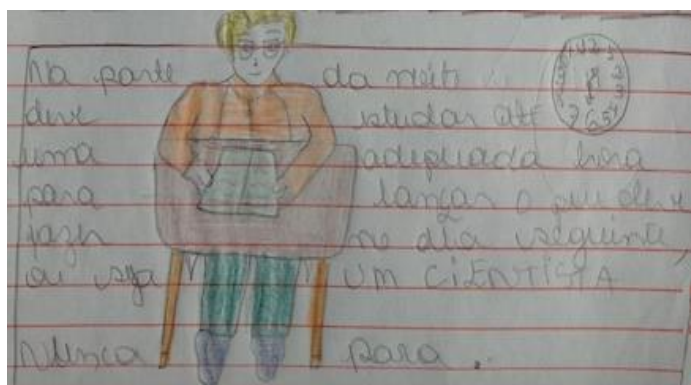 Na parte da noite
deve estudar até
uma adequada hora
para lançar o que deve
fazer no dia seguinte,
ou seja UM CIENTISTA
Nunca para.